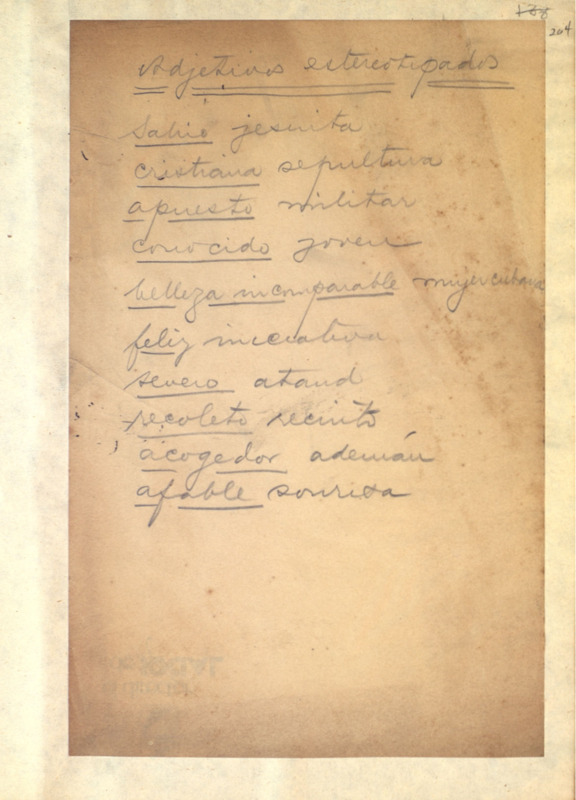 138
204
Adjetivos estereotipados
Sabio jesuita
cristiana sepultura
apuesto militar
conocido joven
belleza incomparable mujer cubana
feliz iniciativa
severo ataud
recoleto recinto
acogedor ademán
afable sonrisa